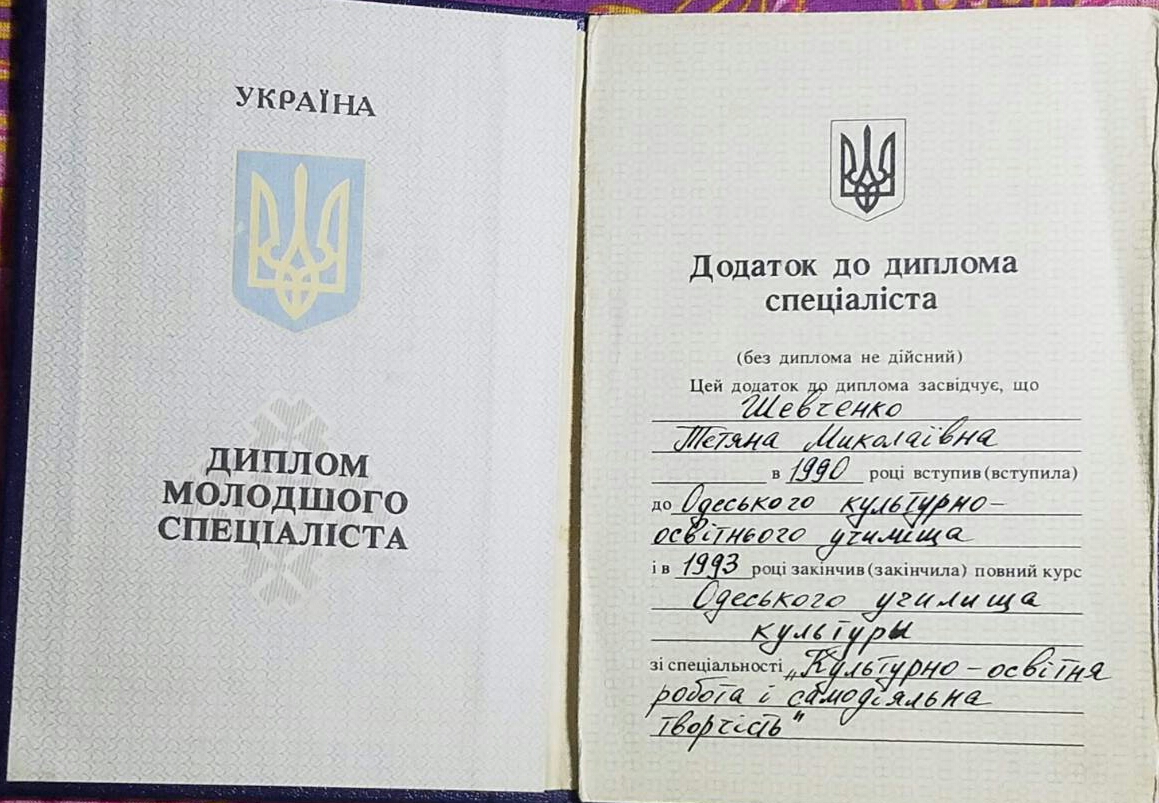 УКРАЇНА
ДИПЛОМ
МОЛОДШОГО
СПЕЦІАЛІСТА
Додаток до диплома
спеціаліста
(без диплома не дійсний)
Цей додаток до диплома засвідчує, що
Шевченко
Тетяна Миколаївна
в 1990 році вступив (вступила)
до Одеського культурно-
освітнього училища
і в 1993 році закінчив (закінчила) повний курс
Одеського училища
культуры
зі спеціальності „Культурно-освітня
робота і самодіяльна
творчість"